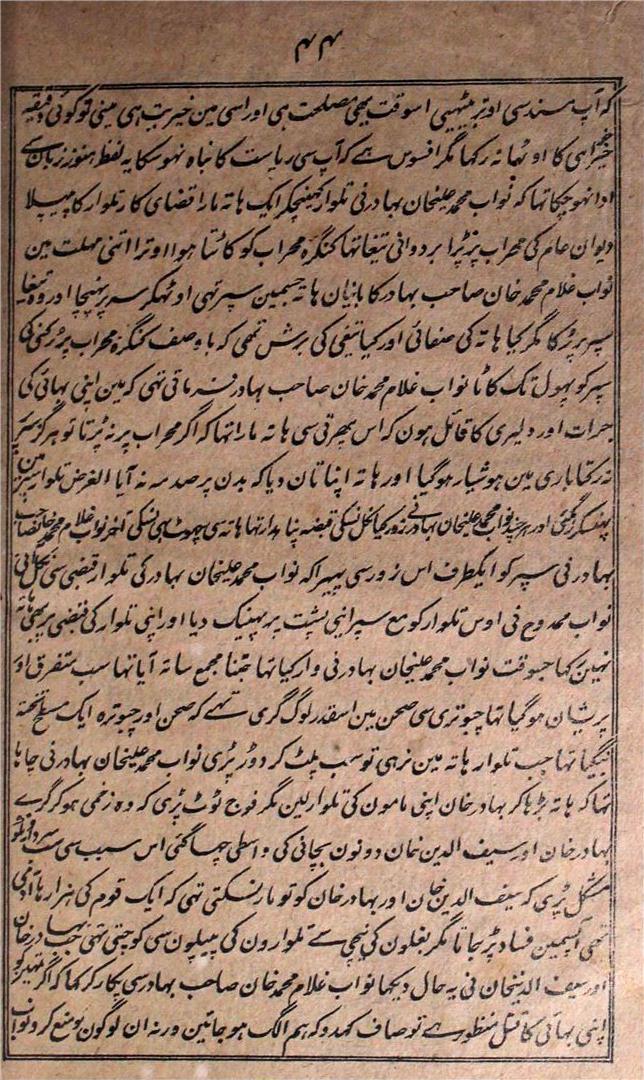 ۴۴
کہ آپ مسند سی اوتر بیٹھیی اسوقت یھی مصلحت ہی اور اسی مین خیریت ہی مینی تو کوئی دقیقہ
خیرخواہی کا اوٹھا نہ رکہا مگر افسوس ہے کہ آپ سی ریاست کا نباہ نہوسکا یہ لفظ ہنوز زبان سے
ادا نہوچکا تہا کہ نواب محمد علیخان بہادر نی تلوار کھینچکر ایک ہاتہ مارا قضای کار تلوار کا پیپلا
دیوان عام کی محراب پر پڑا بردوانی تیغا تہا کنگرہ محراب کو کاٹتا ہوا اوترا اتنی مہلت مین
نواب غلام محمد خان صاحب بہادر کا بایان ہاتہ جسمین سپر تہی اوٹھکر سر پر پہنچا اور وہ تیغا
سپر پر پڑکا مگر کیا ہاتہ کی صفائی اور کیا تیغی کی برش تھی کہ باوصف کنگرہ محراب پر رکنی کی
سپر کو پھول تک کاٹا نواب غلام محمد خان صاحب بہادر فرماتی تہی کہ مین اپنی بھائی کی
جرات اور دلیری کا قائل ہون کہ اس پھرتی سی ہاتہ مارا تہا کہ اگر محراب پر نہ پڑتا تو ہرگز سر
نہ رکتا باری مین ہوشیار ہوگیا اور ہاتہ اپنا تان دیا کہ بدن پر صدمہ نہ آیا الغرض تلوار سپر مین
پھنسکر رہگئی اور ہرچند نواب محمد علیخان بہادر نے زور کیا نکل نسکی قبضہ پنا ہدار تہا ہاتہ سی چھوٹ بھی نسکی آخر نواب غلام محمد خانصاحب
بہادر نی سپر کو ایکطرف اس زور سی پھیرا کہ نواب محمد علیخان بہادر کی تلوار قبضی سی نکل گئی
نواب ممدوح نی اوس تلوار کو مع سپر اپنی پشت پر پھینک دیا اور اپنی تلوار کی قبضی پر بھی ہاتہ
نہین رکہا جسوقت نواب محمد علیخان بہادر نی وار کیا تہا جتنا مجمع ساتہ آیا تہا سب متفرق اور
پریشان ہوگیا تہا چبوتری سی صحن مین اسقدر لوگ گری تہے کہ صحن اور چبوترہ ایک مسطح تختہ
بنگیا تہا جب تلوار ہاتہ مین نرہی تو سب پلٹ کر دوڑ پڑی نواب محمد علیخان بہادر نی چاہا
تہا کہ ہاتہ بڑہاکر بہادر خان اپنی مامون کی تلوار لین مگر فوج ٹوٹ پڑی کہ وہ زخمی ہوکر گرے
بہادر خان اور سیف الدین خان دونون بچانی کی واسطی چہا گئی اس سبب سی
مشکل پڑی کہ سیف الدین خان اور بہادر خان کو تو مار نسکتی تہی کہ ایک قوم کی ہزارہا آدمی
تھی آپسمین فساد پڑجاتا مگر بغلون کی نیچی سے تلوارون کی پیپلون سی کوچتی تھی جب بہادر خان
اور سیف الدینخان نی یہ حال دیکہا نواب غلام محمد خان صاحب بہادر سی پکار کر کہا کہ اگر
اپنی بہائی کا قتل منظور ہے تو صاف کہدو کہ ہم الگ ہوجائین ورنہ ان لوگون کو منع کرو نواب